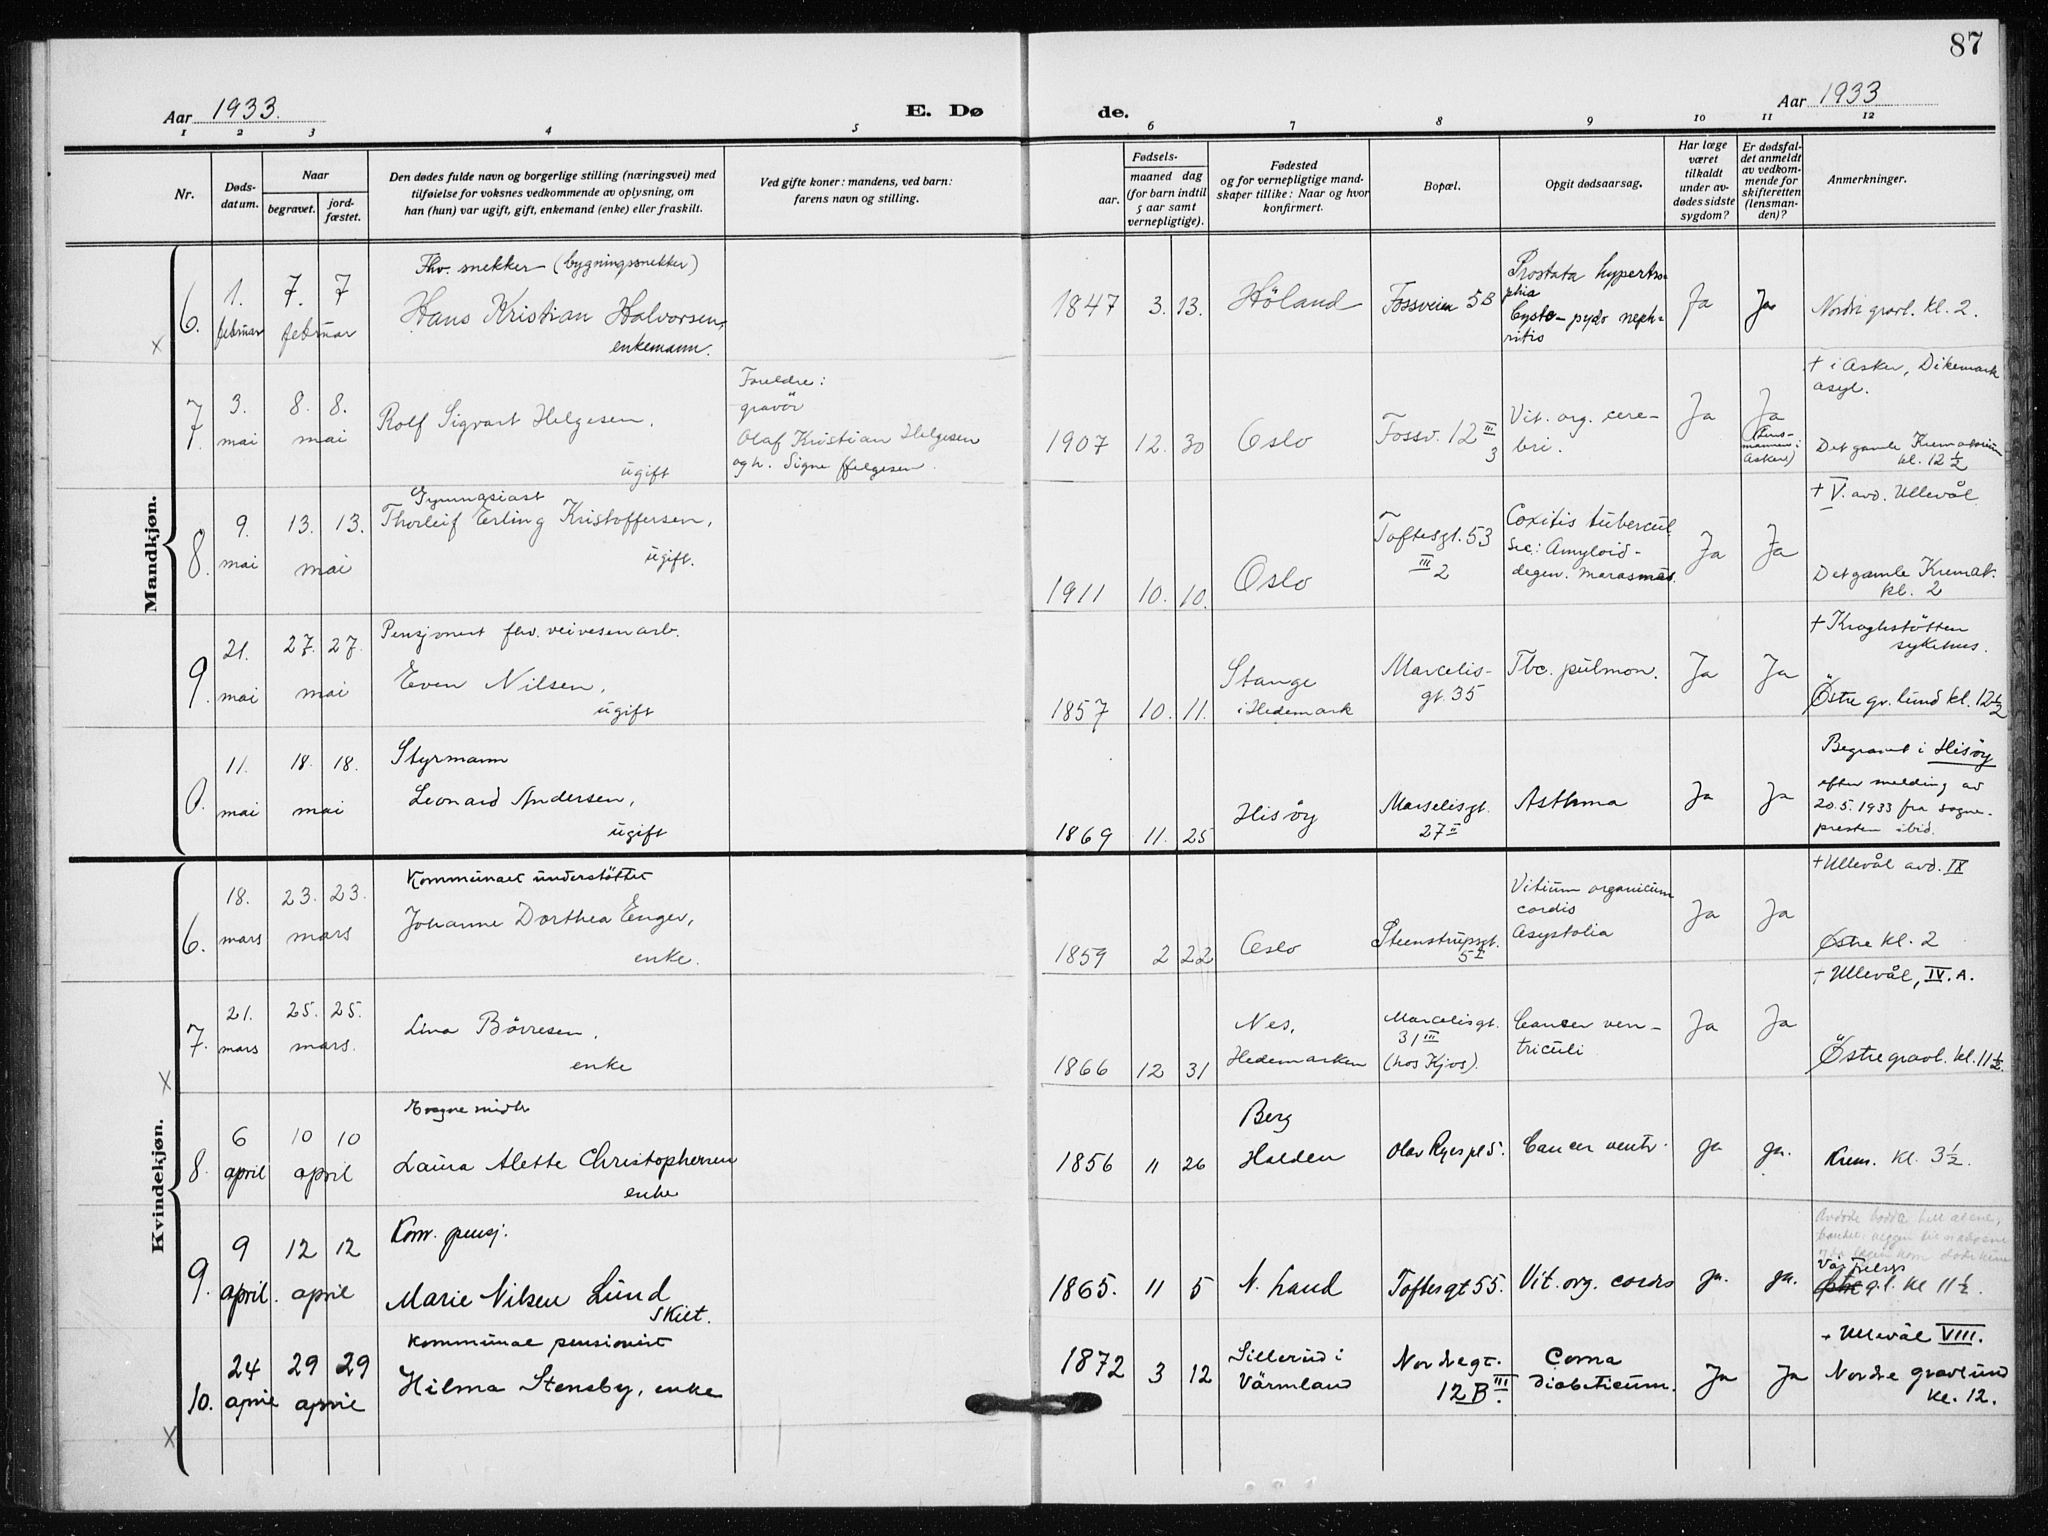 87
Aar 1933.
E. Dø
de.
Aar 1933
1 2 3 4 5 6 7 8 9 10 11 12
Nr.
Døds-
datum.
Naar
begravet.
jord-
fæstet.
Den dødes fulde navn og borgerlige stilling (næringsvei) med
tilføielse for voksnes vedkommende av oplysning, om
han (hun) var ugift, gift, enkemand (enke) eller fraskilt.
Ved gifte koner: mandens, ved barn:
farens navn og stilling.
Fødsels-
aar.
maaned dag
(for barn indtil
5 aar samt
vernepligtige).
Fødested
og for vernepligtige mand-
skaper tillike: Naar og hvor
konfirmert.
Bopæl.
Opgit dødsaarsag.
Har læge
været
tilkaldt
under av-
dødes sidste
sygdom?
Er dødsfal-
det anmeldt
av vedkom-
mende for
skifteretten
(lensman-
den)?
Anmerkninger.
Mandkjøn.
6.
1.
februar
7. 7
februar
Fhv. snekker (bygningssnekker)
Hans Kristian Halvorsen,
enkemann.
1847 3. 13.
Höland
Fossveien 5B
Prostata hypertro-
phia
Cysto-pyelo neph-
ritis
Ja
Ja
Nordre gravl. kl. 2.
7.
3.
mai
8. 8.
mai
Rolf Sigvart Helgesen,
ugift
Foreldre:
gravör
Olaf Kristian Helgesen
og h. Signe Helgesen.
1907 12. 30
Oslo
Fossv. 12 III
3
Vit. org. cere-
bri.
Ja
Ja
(Lens-
mannen i
Asker)
† i Asker, Dikemark
asyl.
Det gamle Krematorium
kl. 12 ½
8.
9.
mai
13. 13.
mai
Gymnasiast
Thorleif Erling Kristoffersen,
ugift.
1911 10. 10.
Oslo
Toftesgt. 53
III 2
Coxitis tubercul.
Sec: Amyloid-
degen. marasmus.
Ja
Ja
† V. avd. Ullevål
Det gamle Kremat.
kl. 2
9.
21.
mai
27. 27.
mai
Pensjonert fhv. veivesenarb.
Even Nilsen,
ugift
1857 10. 11.
Stange
i Hedemark
Marcelis-
gt. 35
Tbc. pulmon.
Ja
Ja
† Kroghstötten
sykehus.
Östre gr. lund kl. 12½
0.
11.
mai
18. 18.
mai
Styrmann
Leonard Andersen,
ugift
1869 11. 25
Hisöy
Marselisgt.
27 II
Asthma
Ja
Ja
Begravet i Hisöy
efter melding av
20.5.1933 fra sogne-
presten ibid.
Kvindekjøn.
6.
18.
mars
23. 23.
mars
Kommunalt understöttet
Johanne Dorthea Enger,
enke.
1859 2 22
Oslo
Steenstrupsgt.
5 I
Vitium organicum
cordis
Asystolia
Ja
Ja
† Ullevål avd. IX
Østre kl. 2
7.
21.
mars
25. 25.
mars.
Lina Bövresen,
enke
1866 12 31
Nes,
Hedemarken
Marcelisgt.
31 III
(hos Kjos).
Cancer ven-
triculi
Ja
Ja
† Ullevål, IV. A.
Östre gravl. kl. 11½.
8.
6
april
10 10
april
Laura Alette Christophersen
enke
1856 11 26
Berg
Halden
Olav Ryes pl 5.
Cancer ventr.
Ja
Ja.
Krem. kl. 3½.
9.
9
april.
12 12
april
Kom. pensj.
Marie Nilsen Lund
skilt.
1865. 11 5
N. Land
Toftesgt 55.
Vit. org. cordis
Ja.
Ja.
Vår Frelsers
g.l. kl 11½.
10.
24
april
29 29
april
Kommunal pensionist
Hilma Stensby, enke
1872 3 12
Sillerud i
Värmland
Nordregt.
12 B III.
Coma
diabeticum.
Ja
Ja
† Ullevål VIII.
Nordre gravlund
kl. 12.